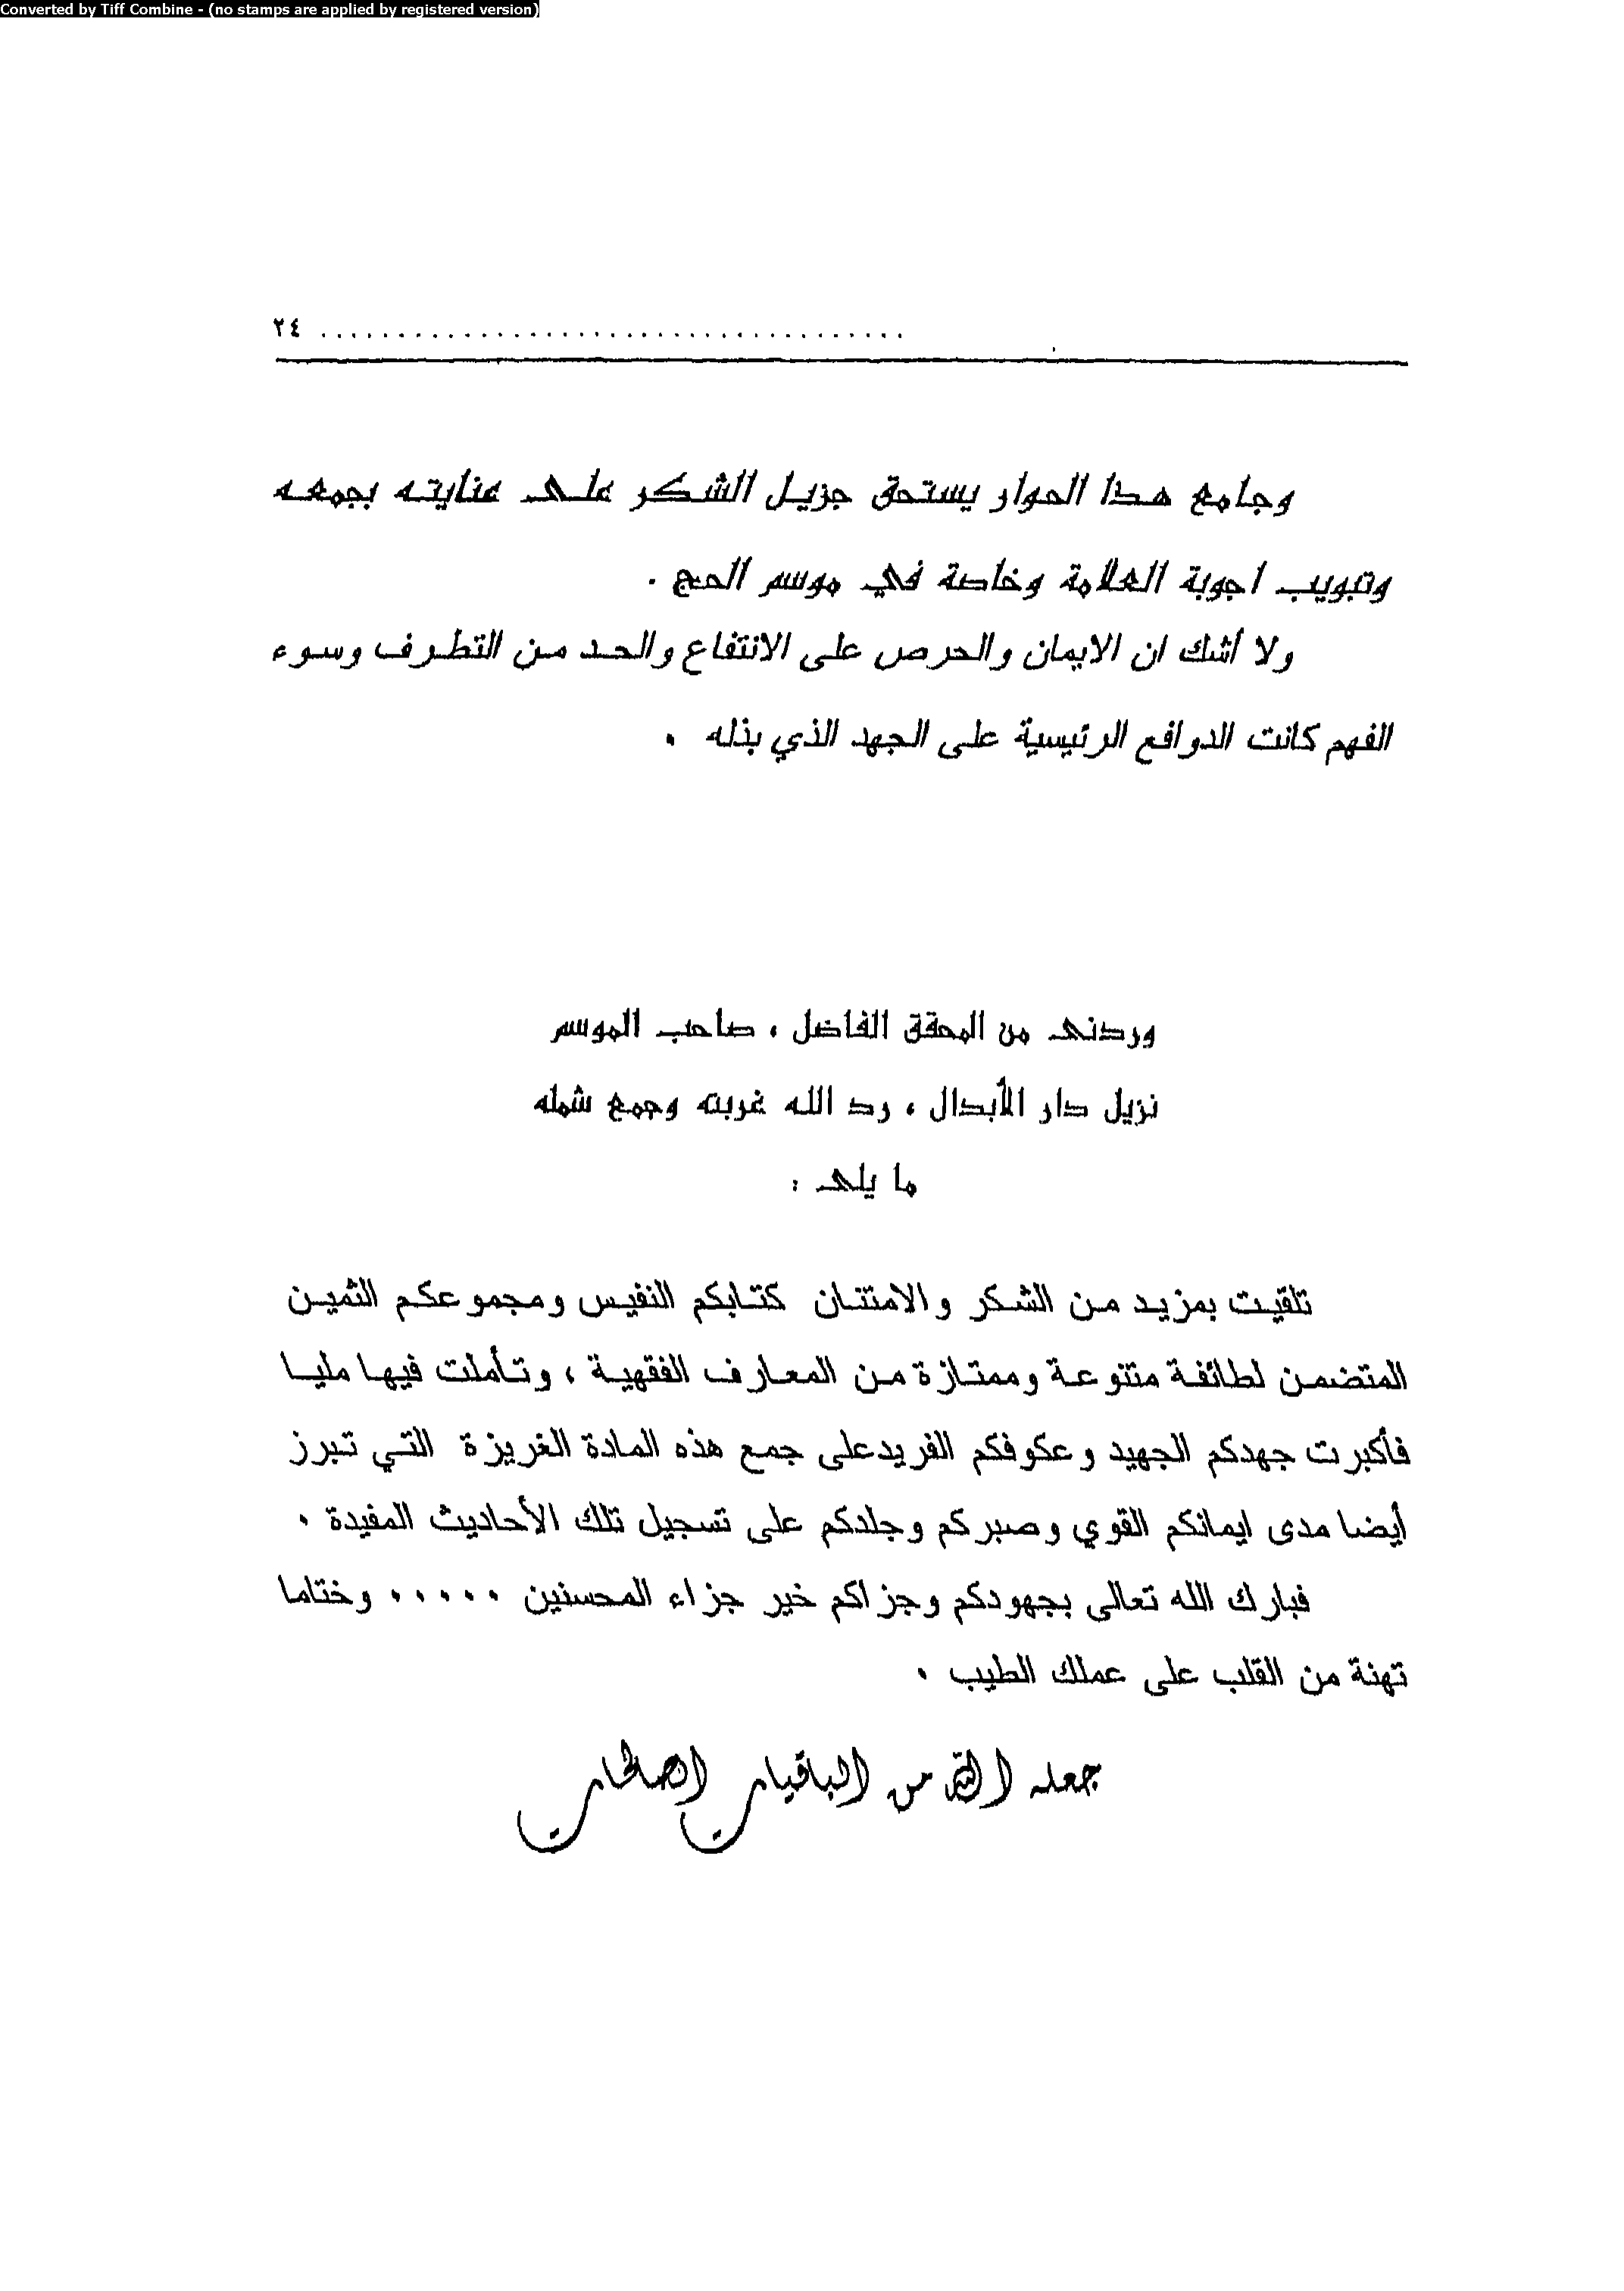 Converted by Tiff Combine - (no stamps are applied by registered version)
٢٤ . . . . . . . . . . . . . . . . . . . . . . . . . . . . . . . . . . . .
وجامع هذا الحوار يستحق جزيل الشكر على عنايته بجمعه
وتبويب اجوبة العلامة وخاصة في موسم الحج .
ولا أشك ان الايمان والحرص على الانتفاع والحد من التطرف وسوء
الفهم كانت الدوافع الرئيسية على الجهد الذي بذله .
وردنى من المحقق الفاضل ، صاحب الموسم
نزيل دار الأبدال ، رد الله غربته وجمع شمله
ما يلى :
تلقيت بمزيد من الشكر والامتنان كتابكم النفيس ومجموعكم الثمين
المتضمن لطائفة متنوعة وممتازة من المعارف الفقهية ، وتأملت فيها مليا
فأكبرت جهدكم الجهيد وعكوفكم الفريد على جمع هذه المادة الغريزة التي تبرز
أيضا مدى ايمانكم القوي وصبركم وجلدكم على تسجيل تلك الأحاديث المفيدة .
فبارك الله تعالى بجهودكم وجزاكم خير جزاء المحسنين ..... وختاما
تهنة من القلب على عملك الطيب .
جعله الله من الباقيات الصالحات